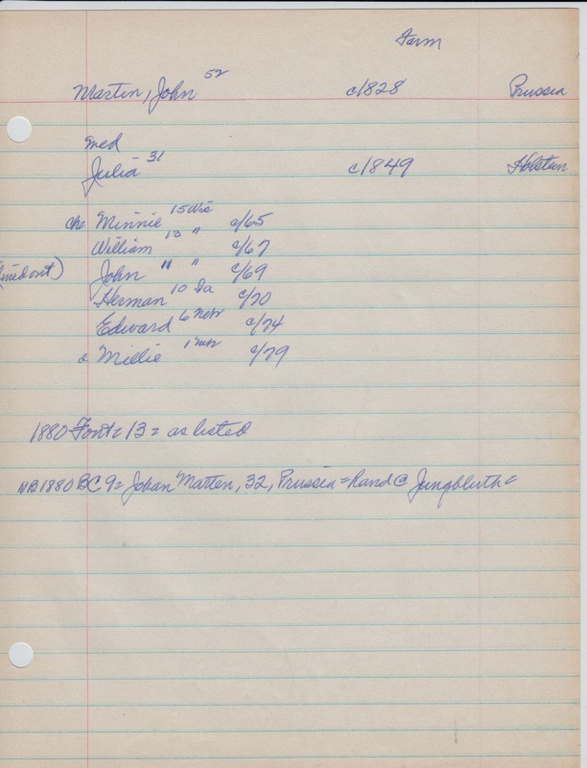 Farm
Martin, John 52 c/1828 Prussia
med
Julia 31 c/1849 Holstein
che Minnie 15 Wis c/65
William 13 " c/67
John 11 " c/69
Herman 10 Ia c/70
Edward 6 Nebr c/74
Millie 1 Nebr c/79
1880 Font= 13= as listed
NB 1880 BC 9= Johan Matten, 32, Prussia= hand @ Jungbluth=